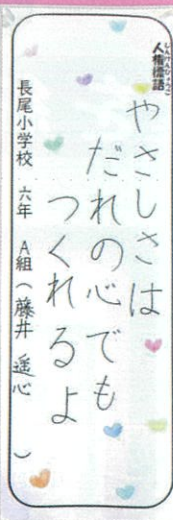 人権標語
じんけんひょうご
やさしさは
だれの心でも
つくれるよ
長尾小学校 六年 A組（藤井 遥心 ）